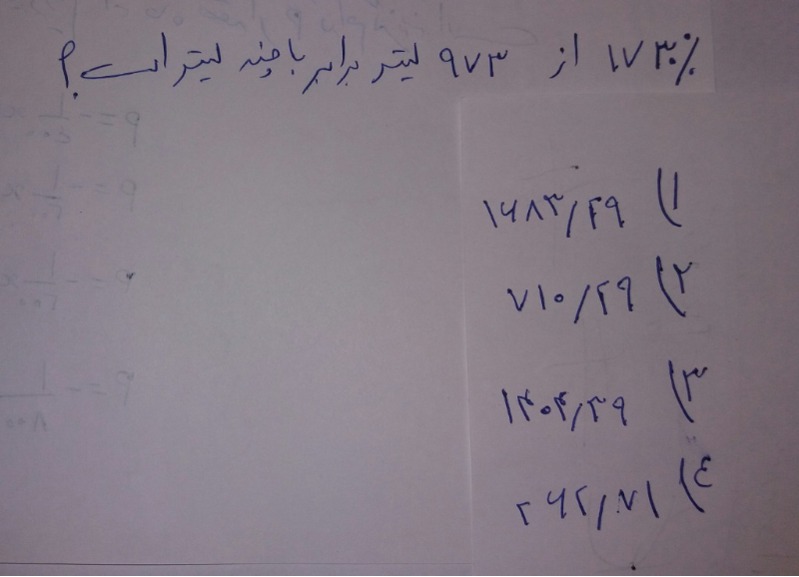 ۱۷۳٪ از ۹۷۳ لیتر برابر با چند لیتر است؟
۱) ۱۶۸۳/۲۹
۲) ۷۱۰/۲۹
۳)
۴) ۲۶۲/۷۱